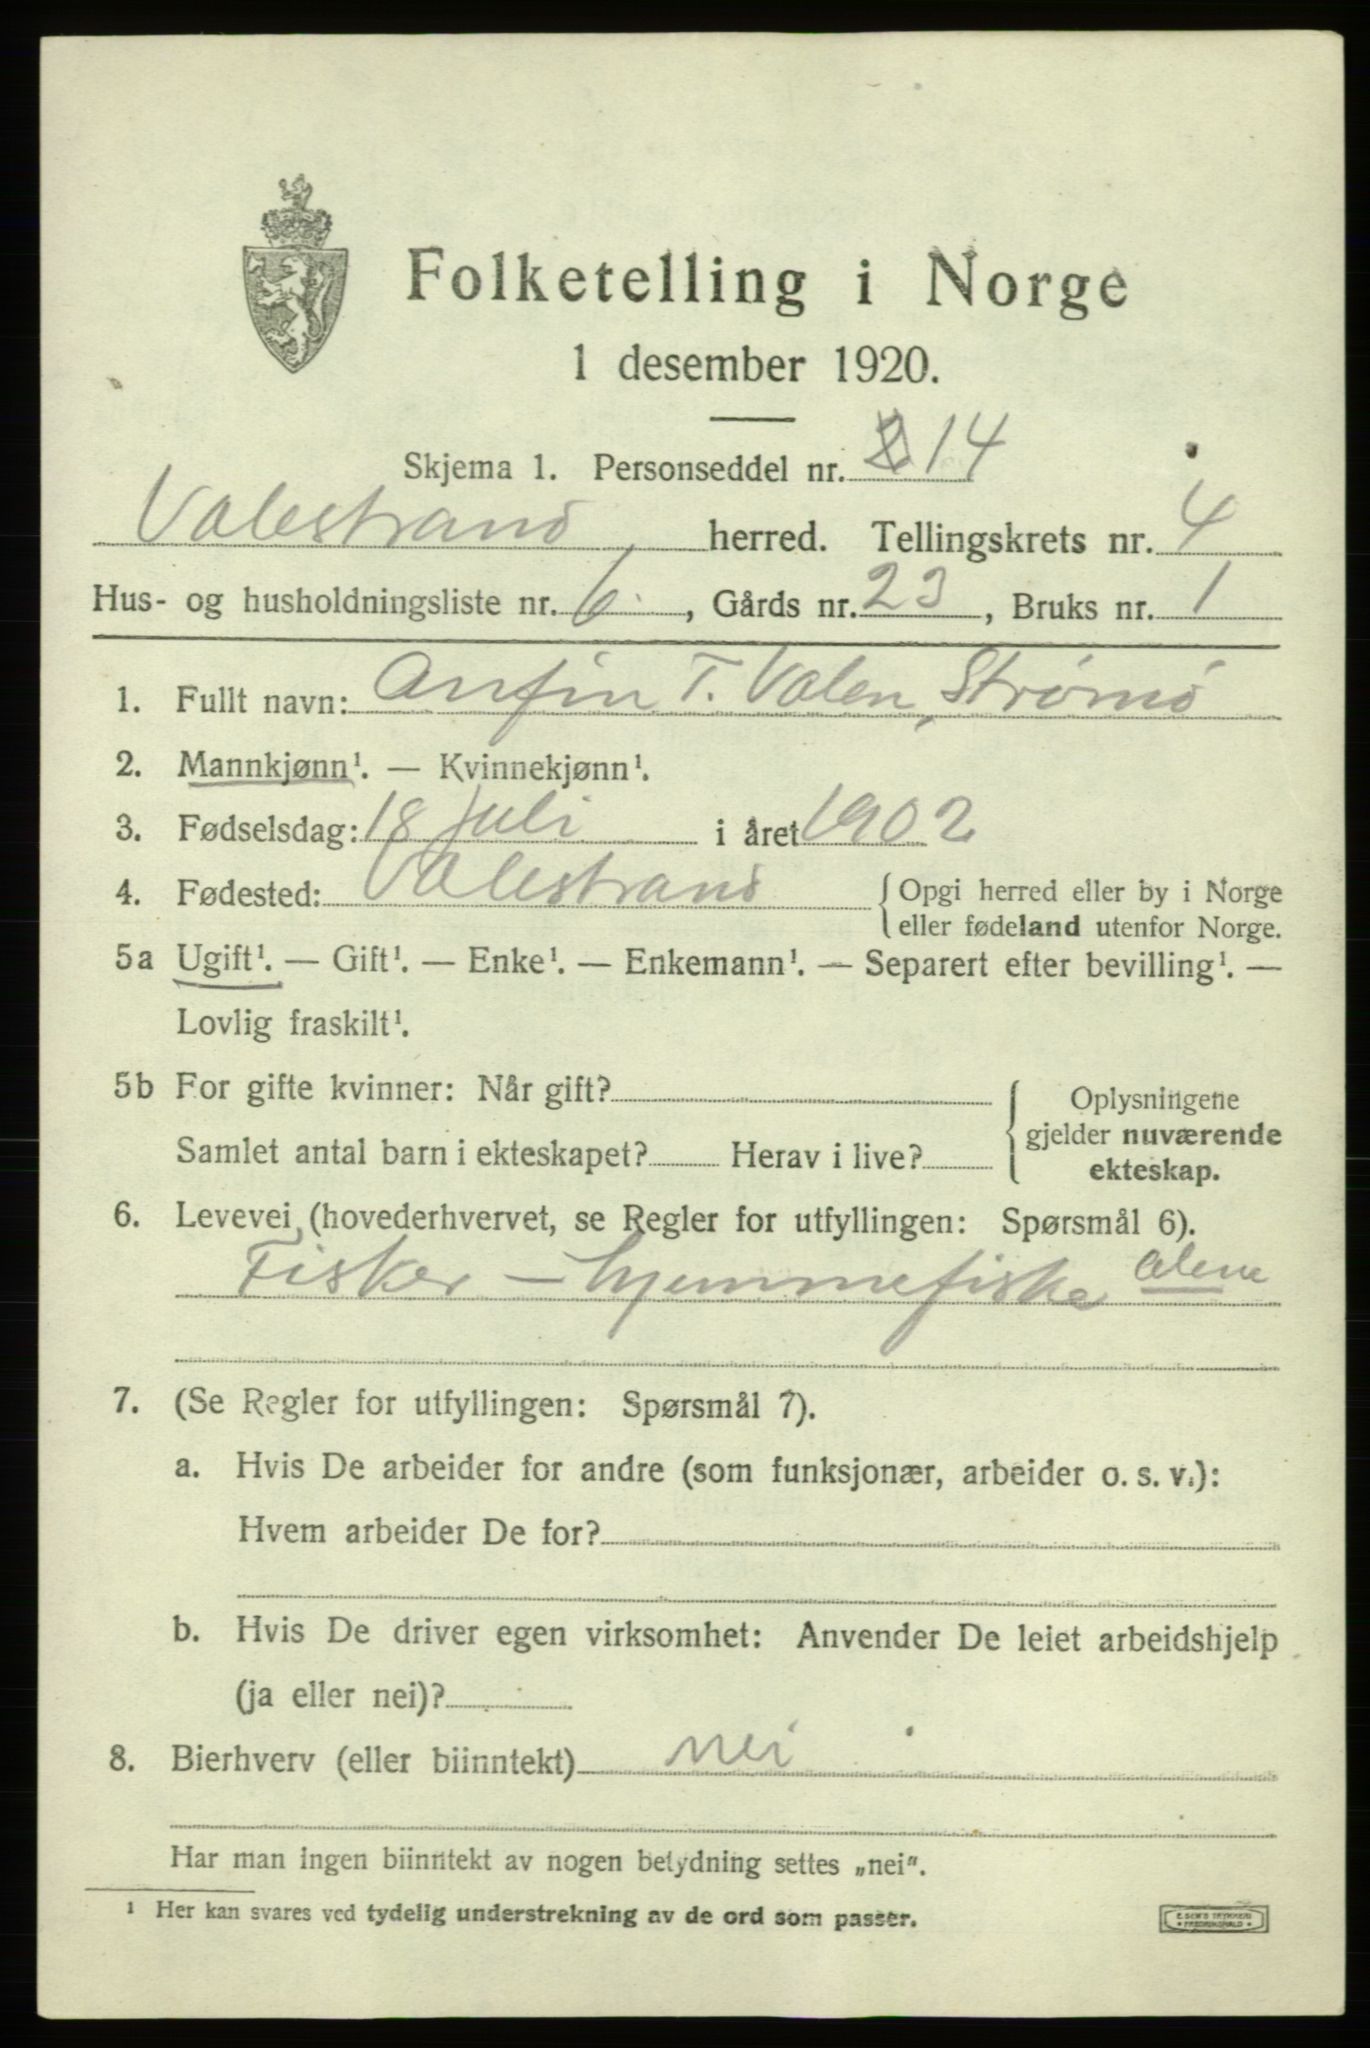 Folketelling i Norge
1 desember 1920.
Skjema 1. Personseddel nr. 14
Valestrand herred. Tellingskrets nr. 4
Hus- og husholdningsliste nr. 6, Gårds nr. 23, Bruks nr. 1
1. Fullt navn: Anfin T. Valen, Strømø
2. Mannkjønn¹. — Kvinnekjønn¹.
3. Fødselsdag: 18 juli i året 1902
4. Fødested: Valestrand {Opgi herred eller by i Norge
eller fødeland utenfor Norge.
5a Ugift¹. — Gift¹. — Enke¹. — Enkemann¹. — Separert efter bevilling¹. —
Lovlig fraskilt¹.
5b For gifte kvinner: Når gift?
Samlet antal barn i ekteskapet? Herav i live?
{Oplysningene
gjelder nuværende
ekteskap.
6. Levevei (hovederhvervet, se Regler for utfyllingen: Spørsmål 6).
Fisker – hjemmefiske alene
7. (Se Regler for utfyllingen: Spørsmål 7).
a. Hvis De arbeider for andre (som funksjonær, arbeider o. s. v.):
Hvem arbeider De for?
b. Hvis De driver egen virksomhet: Anvender De leiet arbeidshjelp
(ja eller nei)?
8. Bierhverv (eller biinntekt) nei
Har man ingen biinntekt av nogen betydning settes „nei".
¹ Her kan svares ved tydelig understrekning av de ord som passer.
E. SEM'S TRYKKERI
• FREDRIKSHALD •